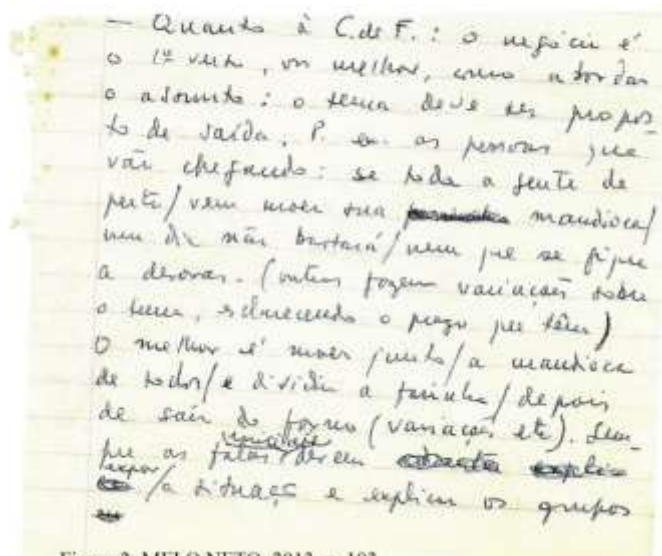 — Quanto à C. de F.: o negócio é
o 1º verso, ou melhor, como abordar
o assunto: o tema deve ser propos-
to de saída. P. ex. as pessoas que
vão chegando: se toda a gente de
perto/vem moer sua mandioca/
um dia não bastará/nem que se fique
a desoras. (outros fazem variações sobre
o tema, esclarecendo o que têm)
O melhor é moer junto/a mandioca
de todos/e dividir a farinha/depois
de sair do forno (variações etc). Sem-
pre as falas devem
expor/a situação e explicar os grupos
Figura 2: MELO NETO, 2013, p. 192